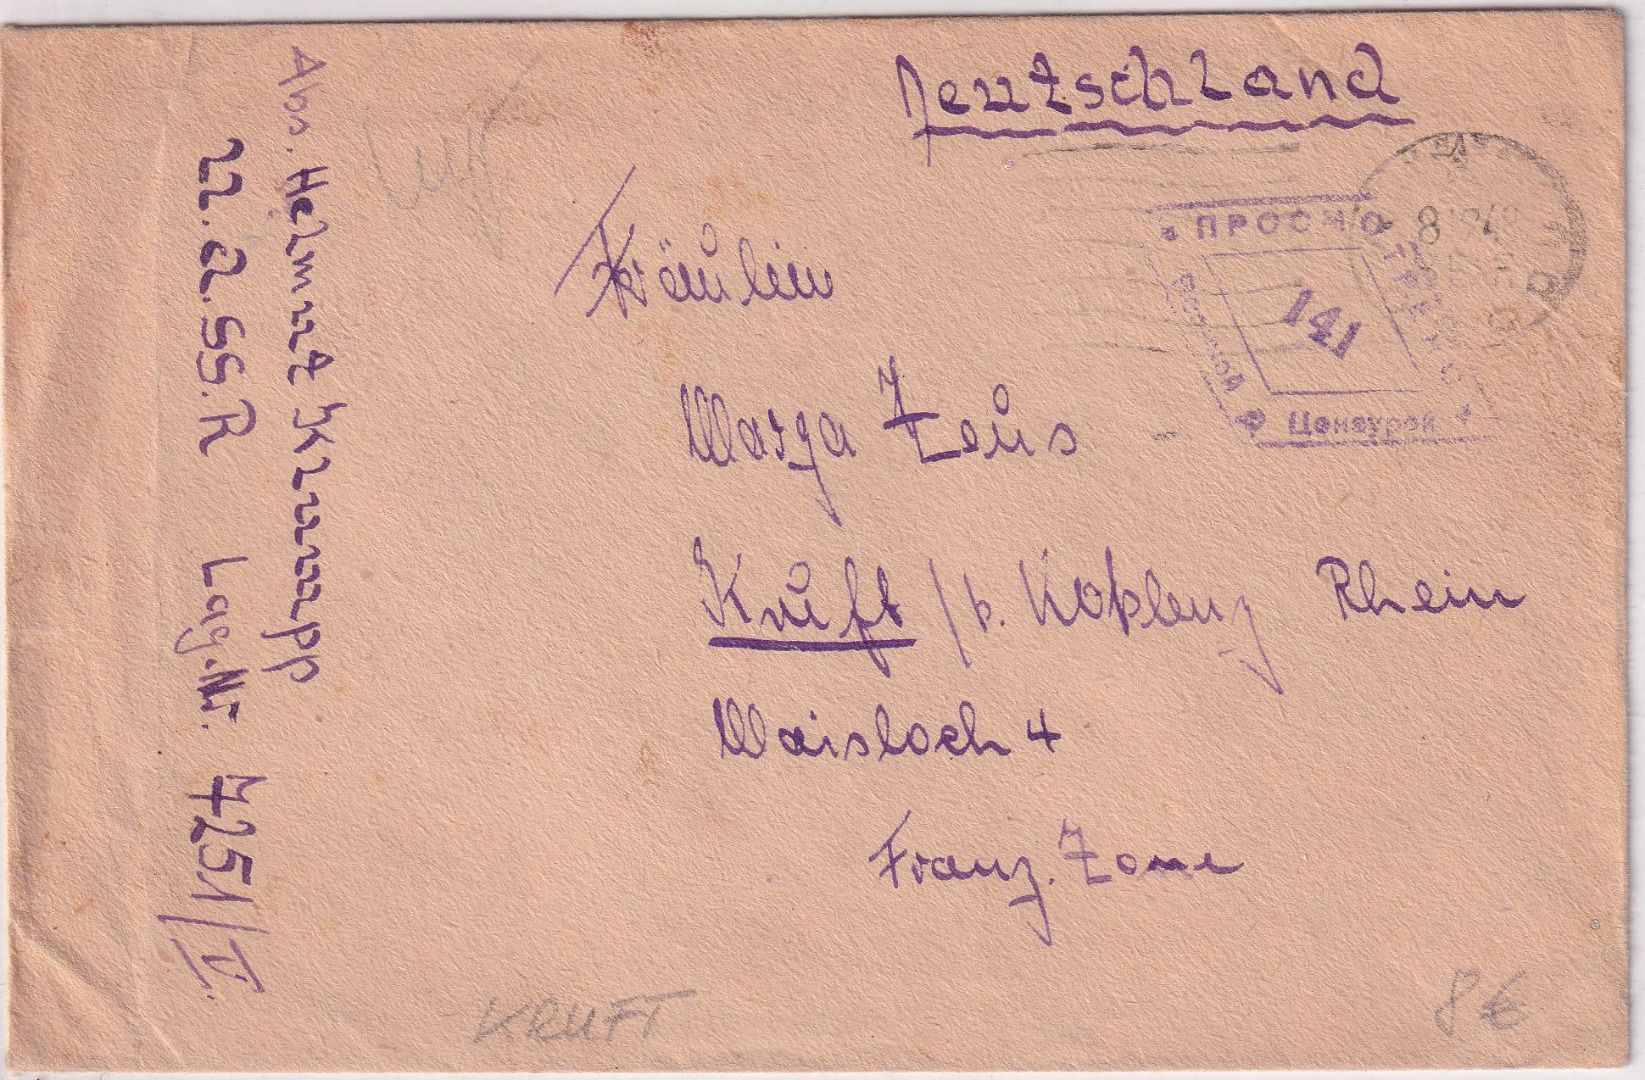 Deutschland
Fräulein
Marga Zeus
Kruft / b. Koblenz Rhein
Maisloch 4
Franz. Zone
Abs. Helmut Krupp
22. 2. SS. R Lag. Nr. 7251/II.
ПРОСМОТРЕНО
Военной
Цензурой
141
KRUFT
8 €